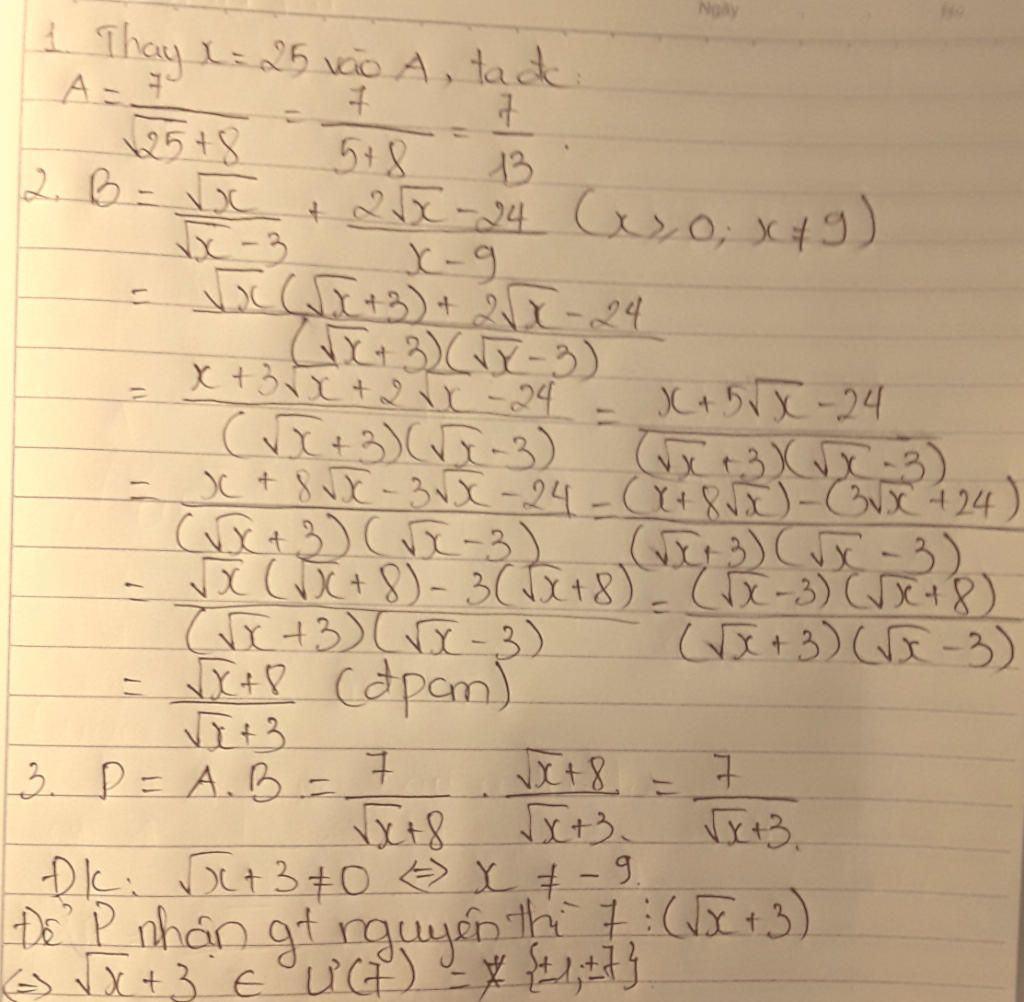 Ngày
No
1. Thay x = 25 vào A, ta đc:
A = 7/(√25+8) = 7/(5+8) = 7/13.
2. B = √x/(√x-3) + (2√x-24)/(x-9) (x ≥ 0; x ≠ 9)
= (√x(√x+3) + 2√x-24)/((√x+3)(√x-3))
= (x+3√x+2√x-24)/((√x+3)(√x-3)) = (x+5√x-24)/((√x+3)(√x-3))
= (x+8√x-3√x-24)/((√x+3)(√x-3)) = ((x+8√x)-(3√x+24))/((√x+3)(√x-3))
= (√x(√x+8)-3(√x+8))/((√x+3)(√x-3)) = ((√x-3)(√x+8))/((√x+3)(√x-3))
= (√x+8)/(√x+3) (đpcm)
3. P = A.B = 7/(√x+8) . (√x+8)/(√x+3) = 7/(√x+3).
ĐK: √x+3 ≠ 0 ⇔ x ≠ -9.
Để P nhận gt nguyên thì 7 ⋮ (√x+3)
⇔ √x+3 ∈ Ư(7) = {±1;±7}